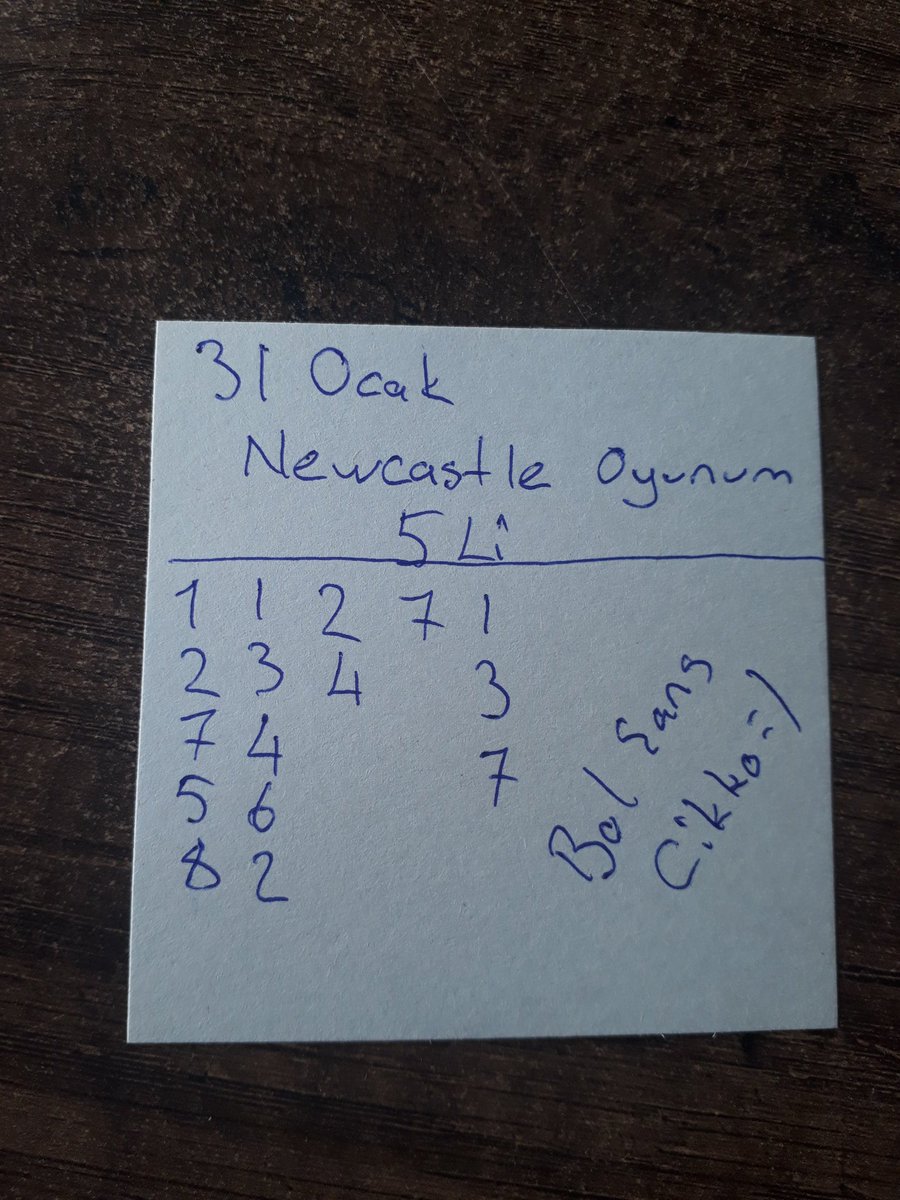 31 Ocak
Newcastle Oyunum
5 Li
1 1 2 7 1
2 3 4 3
7 4 7
5 6
8 2
Bol Şans
Cikko :)